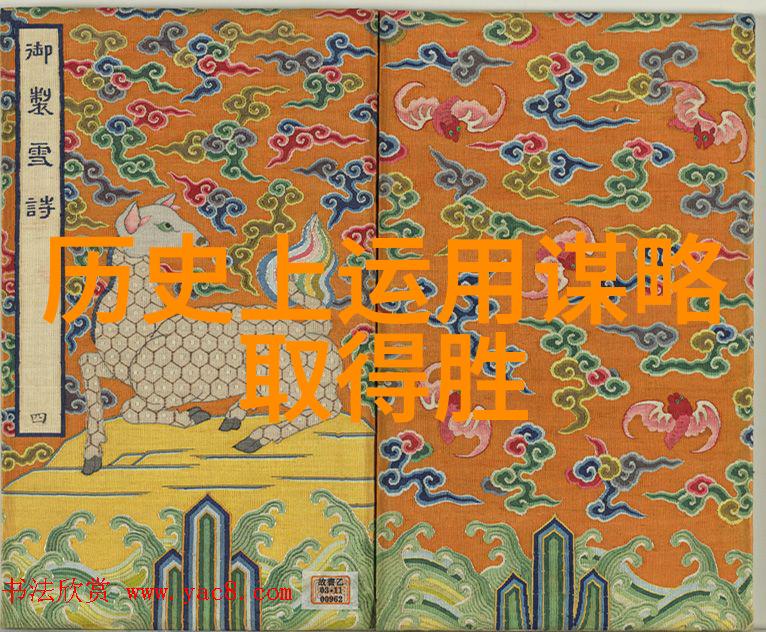 御製雪詩
四
历史上运用谋略
取得胜
书法欣赏 www.yac8.com
故書乙
03•11
00962